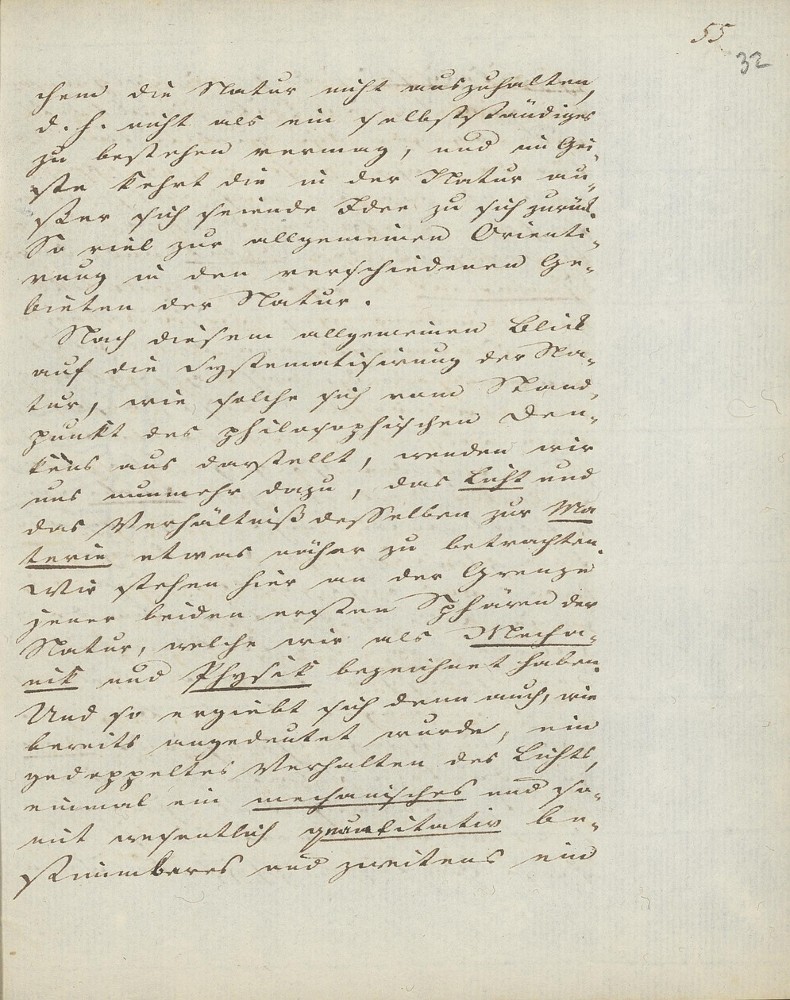 55
32
chem die Natur nicht auszuhalten,
d. h. nicht als ein selbstständiges
zu bestehen vermag, und im Gei-
ste kehrt die in der Natur au-
ßer sich seiende Idee zu sich zurück.
So viel zur allgemeinen Orienti-
rung in den verschiedenen Ge-
bieten der Natur.
Nach diesem allgemeinen Blick
auf die Systematisirung der Na-
tur, wie solche sich vom Stand-
punkt des philosophischen Den-
kens aus darstellt, wenden wir
uns nunmehr dazu, das Licht und
das Verhältniß desselben zur Ma
terie etwas näher zu betrachten.
Wir stehen hier an der Grenze
jener beiden ersten Sphären der
Natur, welche wir als Mecha-
nik und Physik bezeichnet haben.
Und so ergiebt sich denn auch, wie
bereits angedeutet wurde, ein
gedoppeltes Verhalten des Lichts,
einmal ein mechanisches und so-
mit wesentlich quantitativ be-
stimmbares und zweitens ein